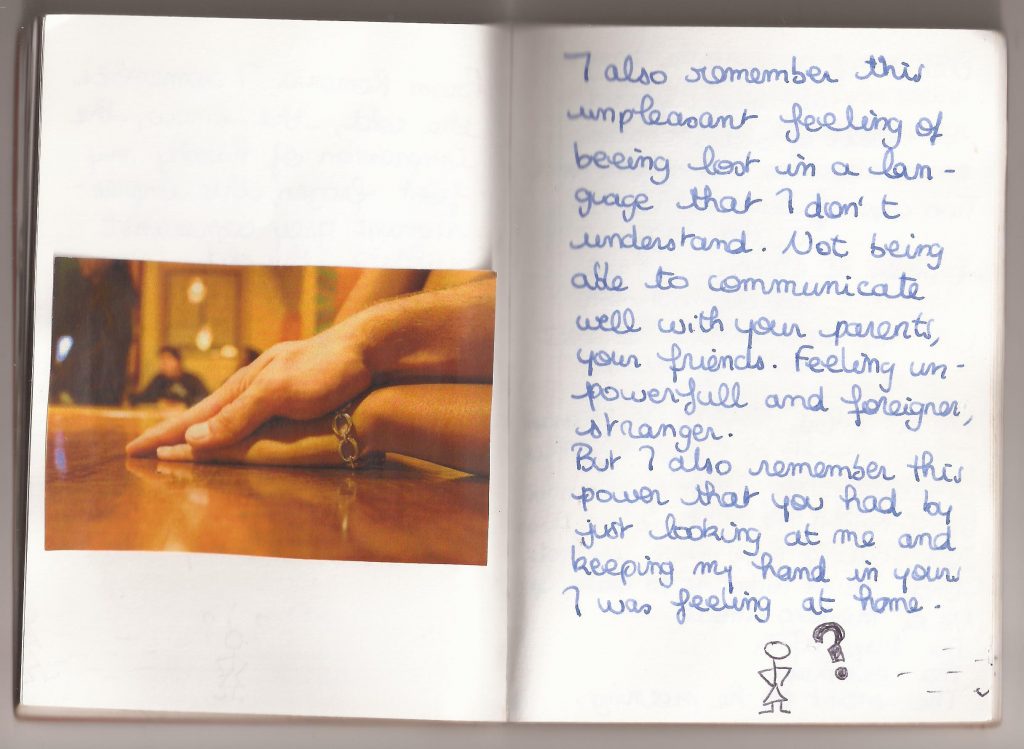 I also remember this
unpleasant feeling of
beeing lost in a lan-
guage that I don't
understand. Not being
able to communicate
well with your parents,
your friends. Feeling un-
powerfull and foreigner,
stranger.
But I also remember this
power that you had by
just looking at me and
keeping my hand in yours
I was feeling at home.
?